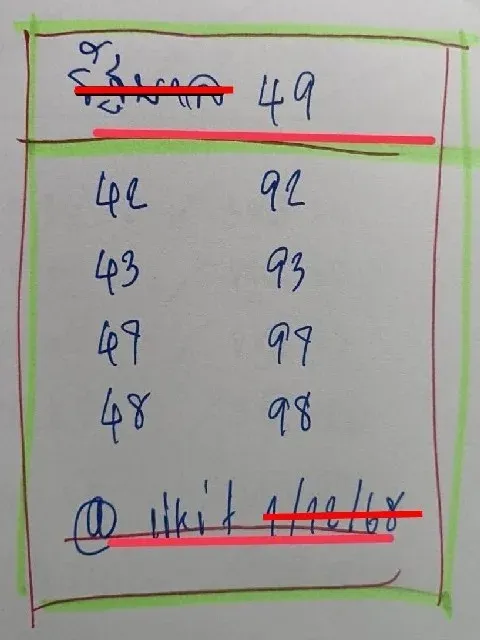 49
42 92
43 93
47 97
48 98
@ likit 1/12/68